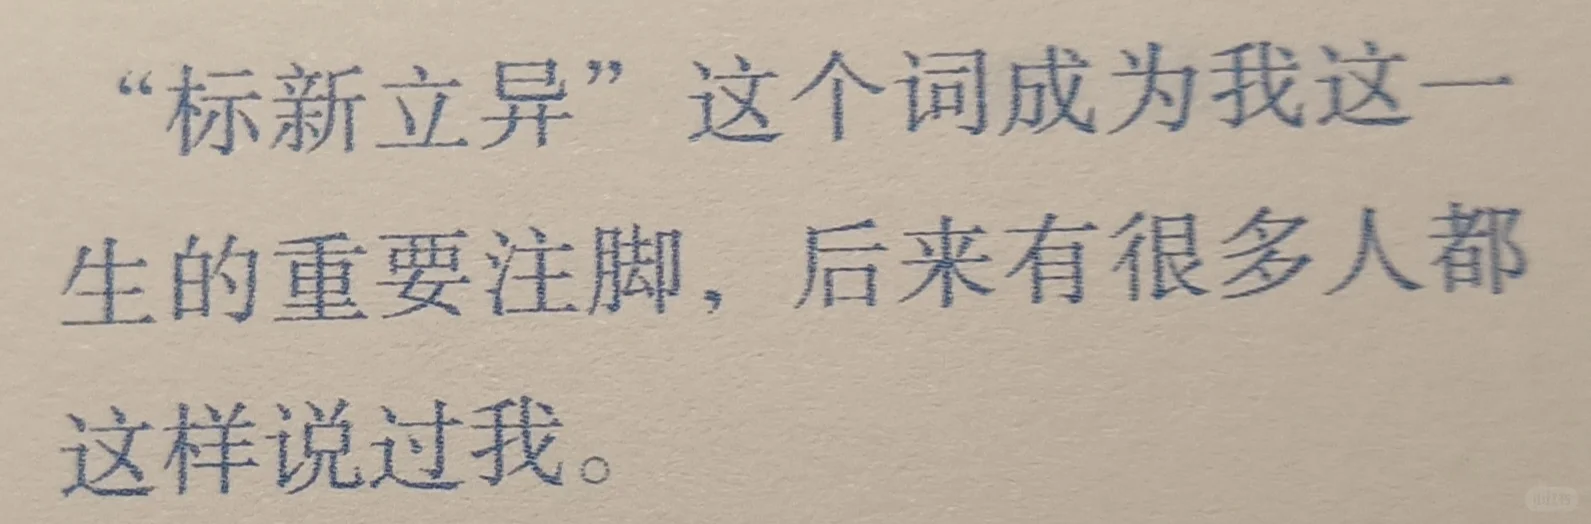 “标新立异”这个词成为我这一
生的重要注脚，后来有很多人都
这样说过我。